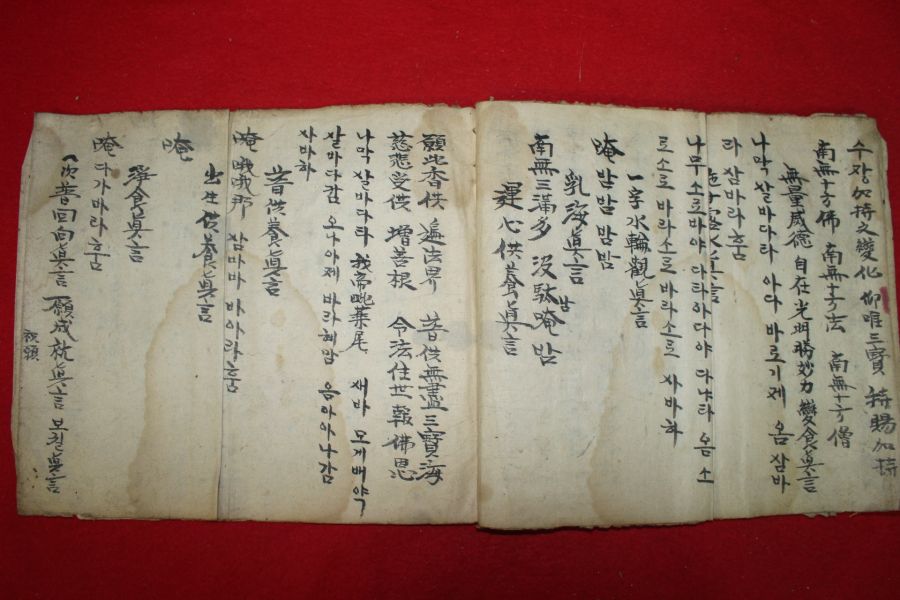 수장加持之變化 仰唯三寶 特賜加持
南無十方佛 南無十方法 南無十方僧
無量威德 自在光明勝妙力 變食眞言
나막 살바다타 아다 바로기제 옴 삼바
라 삼바라 훔
나무 소로바야 다타아다야 다냐타 옴 소
로소로 바라소로 바라소로 사바하
一字水輪觀眞言
唵 밤 밤 밤밤
乳海眞言
南無三滿多 沒馱喃 唵 밤
運心供養眞言
願此香供遍法界 普供無盡三寶海
慈悲受供增善根 令法住世報佛恩
나막 살바다타 我帝毗藥尾 새바 모지배약
살바다캄 오나아제 바라혜맘 옴 아아나캄
사바하
普供養眞言
唵 哦哦那 삼바바 바아라 훔
出生供養眞言
唵
淨食眞言
唵 다가바라 훔
次普回向眞言 願成就眞言 보궐眞言
祝願